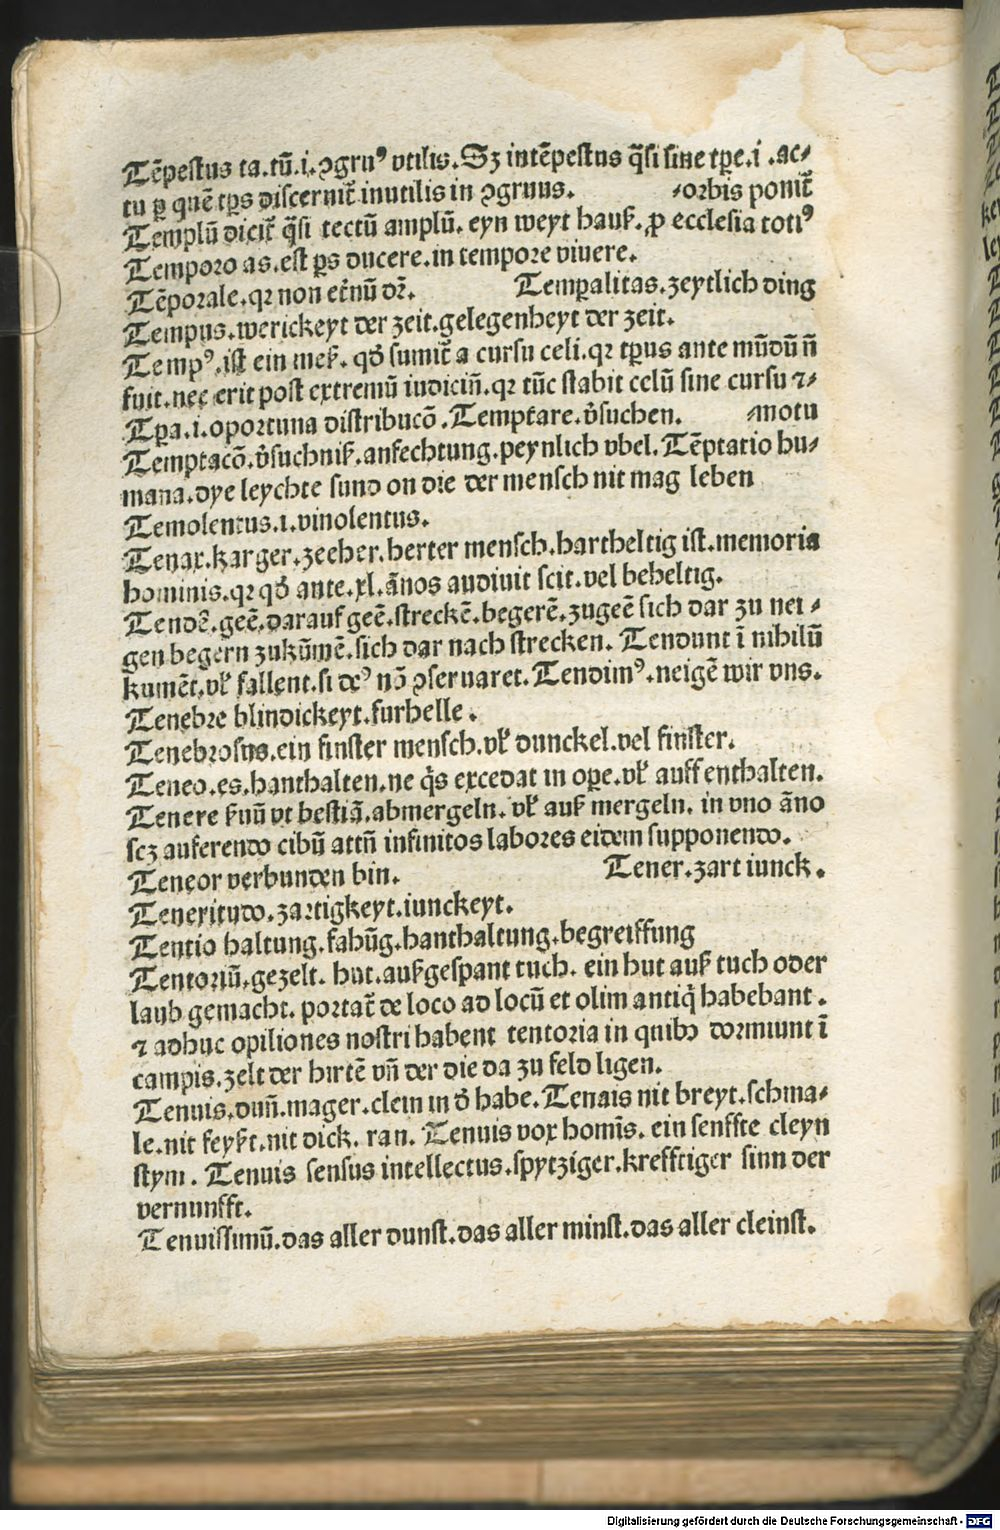 Tēpestus ta.tū.i.ꝯgruꝰ vtilis.Sꝫ intēpestus q̄si sine tp̄e.i .ac⸗
tu ꝑ quē tp̄s discernit̄ inutilis in ꝯgruus. ⸗orbis ponit̄
Templū dicit̄ q̄si tectū amplū. eyn weyt hauß. ꝓ ecclesia totiꝰ
Temporo as.est ꝑs ducere.in tempore viuere.
Tēporale.qꝛ non et̄nū dꝛ̄. Temꝑalitas.zeytlich ding
Tempus.werickeyt der zeit.gelegenheyt der zeit.
Tempꝰ.ist ein meß. qđ sumit̄ a cursu celi.qꝛ tp̄us ante mūdū n̄
fuit.nec erit post extremū iudiciū.qꝛ tūc stabit celū sine cursu ⁊⸗
Tꝑa.i.oportuna distribucō.Temptare.v̉suchen. ⸗motu
Temptacō.v̉suchniß.anfechtung.peynlich vbel.Tēptatio hu⸗
mana.dye leychte sund on die der mensch nit mag leben
Temolentus.i.vinolentus.
Tenax.karger.zeeher.herter mensch.hartheltig ist.memoria
hominis.qꝛ qđ ante.xl.ānos audiuit scit.vel beheltig.
Tendē.geē.darauf geē.streckē.begerē.zugeē sich dar zu nei⸗
gen begern zukūmē.sich dar nach strecken. Tendunt ī nihilū
kumēt.vł fallent.si deꝰ nō ꝯseruaret.Tendimꝰ.neigē wir vns.
Tenebre blindickeyt.furhelle.
Tenebrosus.ein finster mensch.vł dunckel.vel finster.
Teneo.es.hanthalten.ne q̇s excedat in oꝑe.vł auff enthalten.
Tenere ẜnū vt bestiā.abmergeln. vł auß mergeln. in vno āno
scꝫ auferendo cibū attn̄ infinitos labores eidem supponendo.
Teneor verbunden bin. Tener.zart iunck.
Teneritudo.zartigkeyt.iunckeyt.
Tentio haltung.fahūg.hanthaltung.begreiffung
Tentoriū.gezelt. hut.außgespant tuch. ein hut auß tuch oder
laub gemacht. portat̄ de loco ad locū et olim antiq̇ habebant.
⁊ adhuc opiliones nostri habent tentoria in quibꝫ dormiunt ī
campis.zelt der hirtē vn̄ der die da zu feld ligen.
Tenuis.dun̄.mager.clein in đ habe.Tenuis nit breyt.schma⸗
le.nit feyßt.nit dick. ran. Tenuis vox homīs. ein senffte cleyn
stym. Tenuis sensus intellectus.spytziger.krefftiger sinn der
vernunfft.
Tenuissimū.das aller dunst.das aller minst.das aller cleinst.
Digitalisierung gefördert durch die Deutsche Forschungsgemeinschaft - DFG